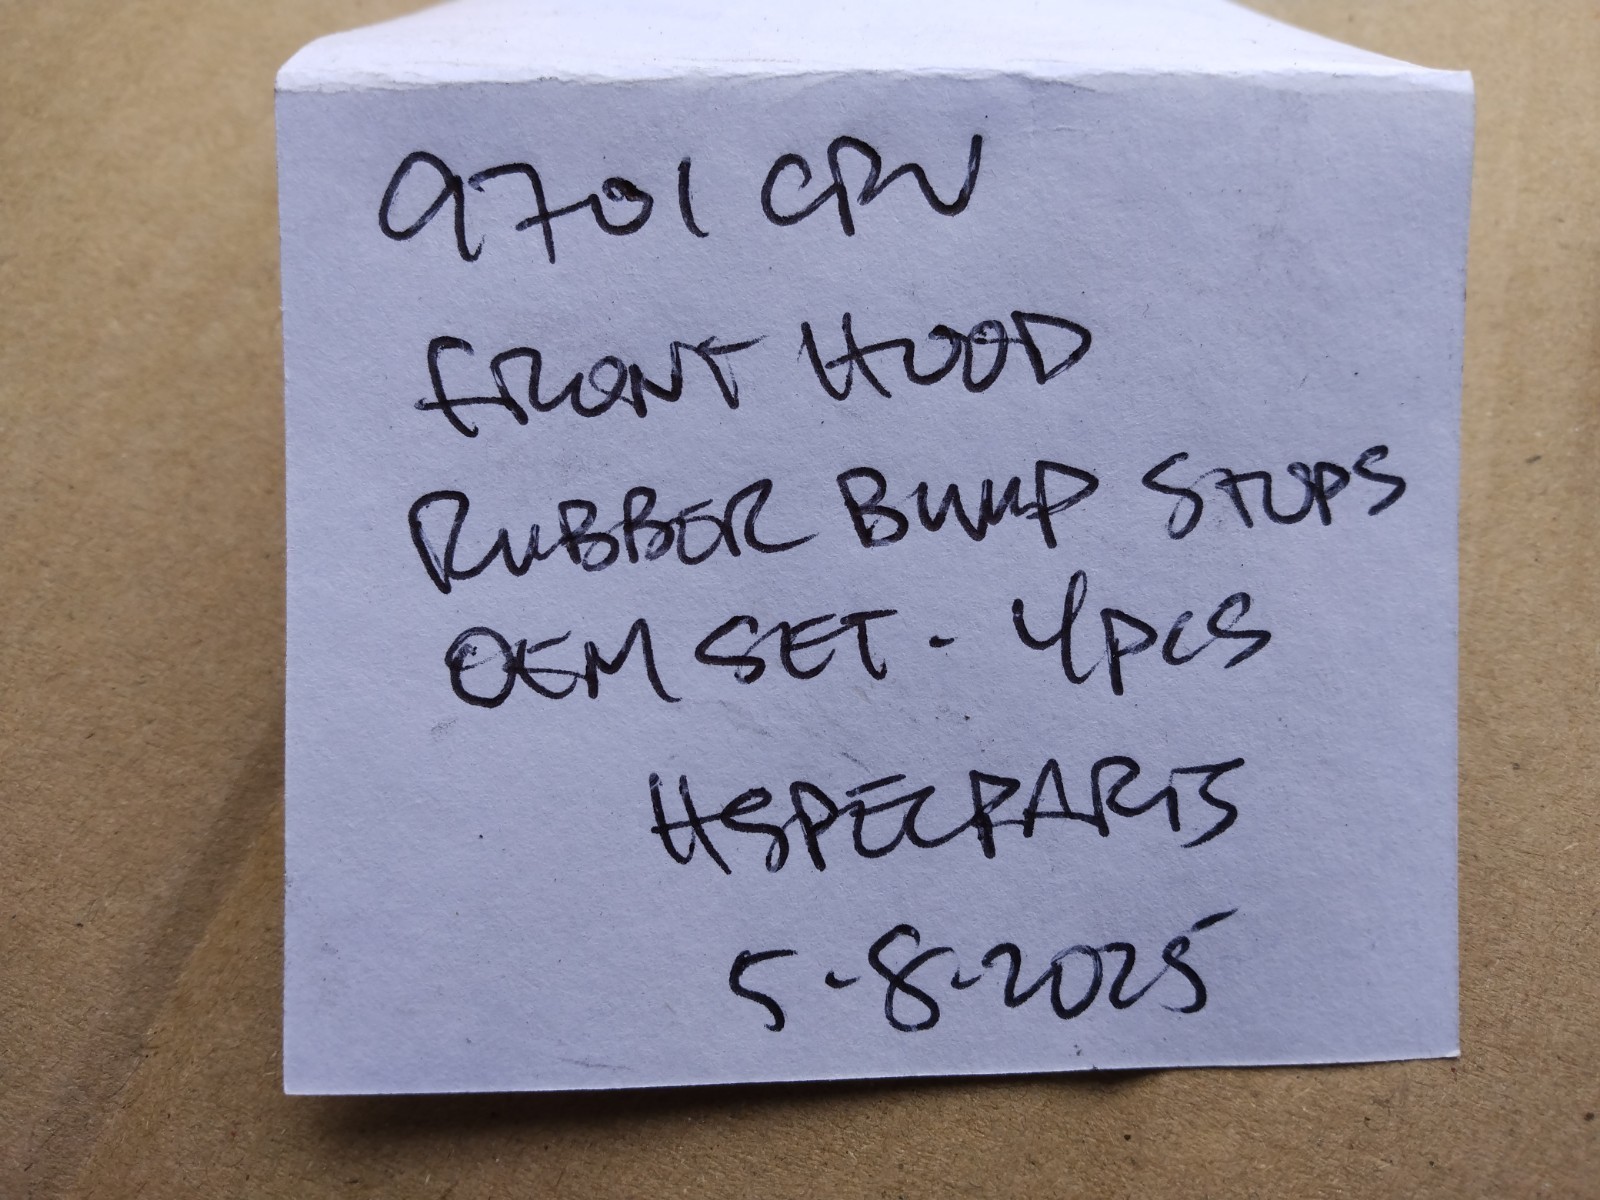 9701 CRV
FRONT HOOD
RUBBER BUMP STOPS
OEM SET - 4PCS
HSPECPARTS
5-8-2025